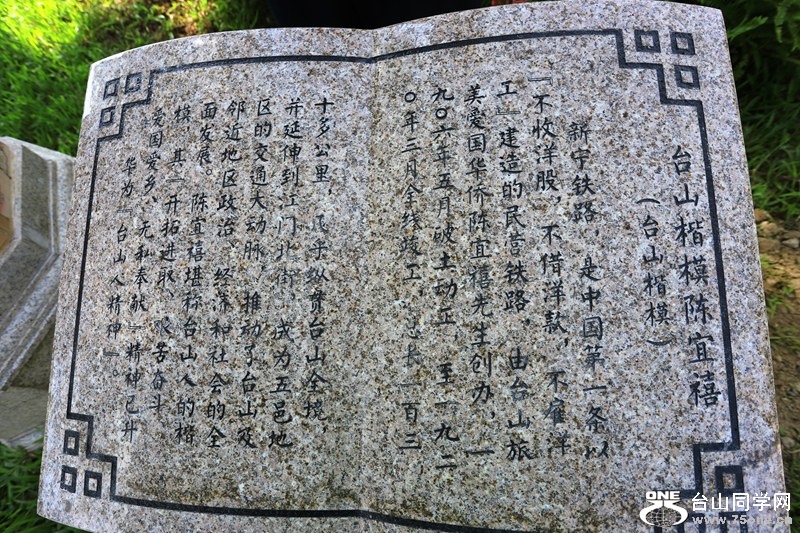 台山楷模陈宜禧
（台山楷模）
新宁铁路，是中国第一条以
『不收洋股，不借洋款，不雇洋
工』建造的民营铁路，由台山旅
美爱国华侨陈宜禧先生创办，一
九〇六年五月破土动工，至一九二
〇年三月全线竣工，总长一百三
十多公里，几乎纵贯台山全境，
并延伸到江门北街，成为五邑地
区的交通大动脉，推动了台山及
邻近地区政治、经济和社会的全
面发展。陈宜禧堪称台山人的楷
模，其『开拓进取、艰苦奋斗
爱国爱乡、无私奉献』精神已升
华为『台山人精神』。
ONE 台山同学网
www.75one.cn